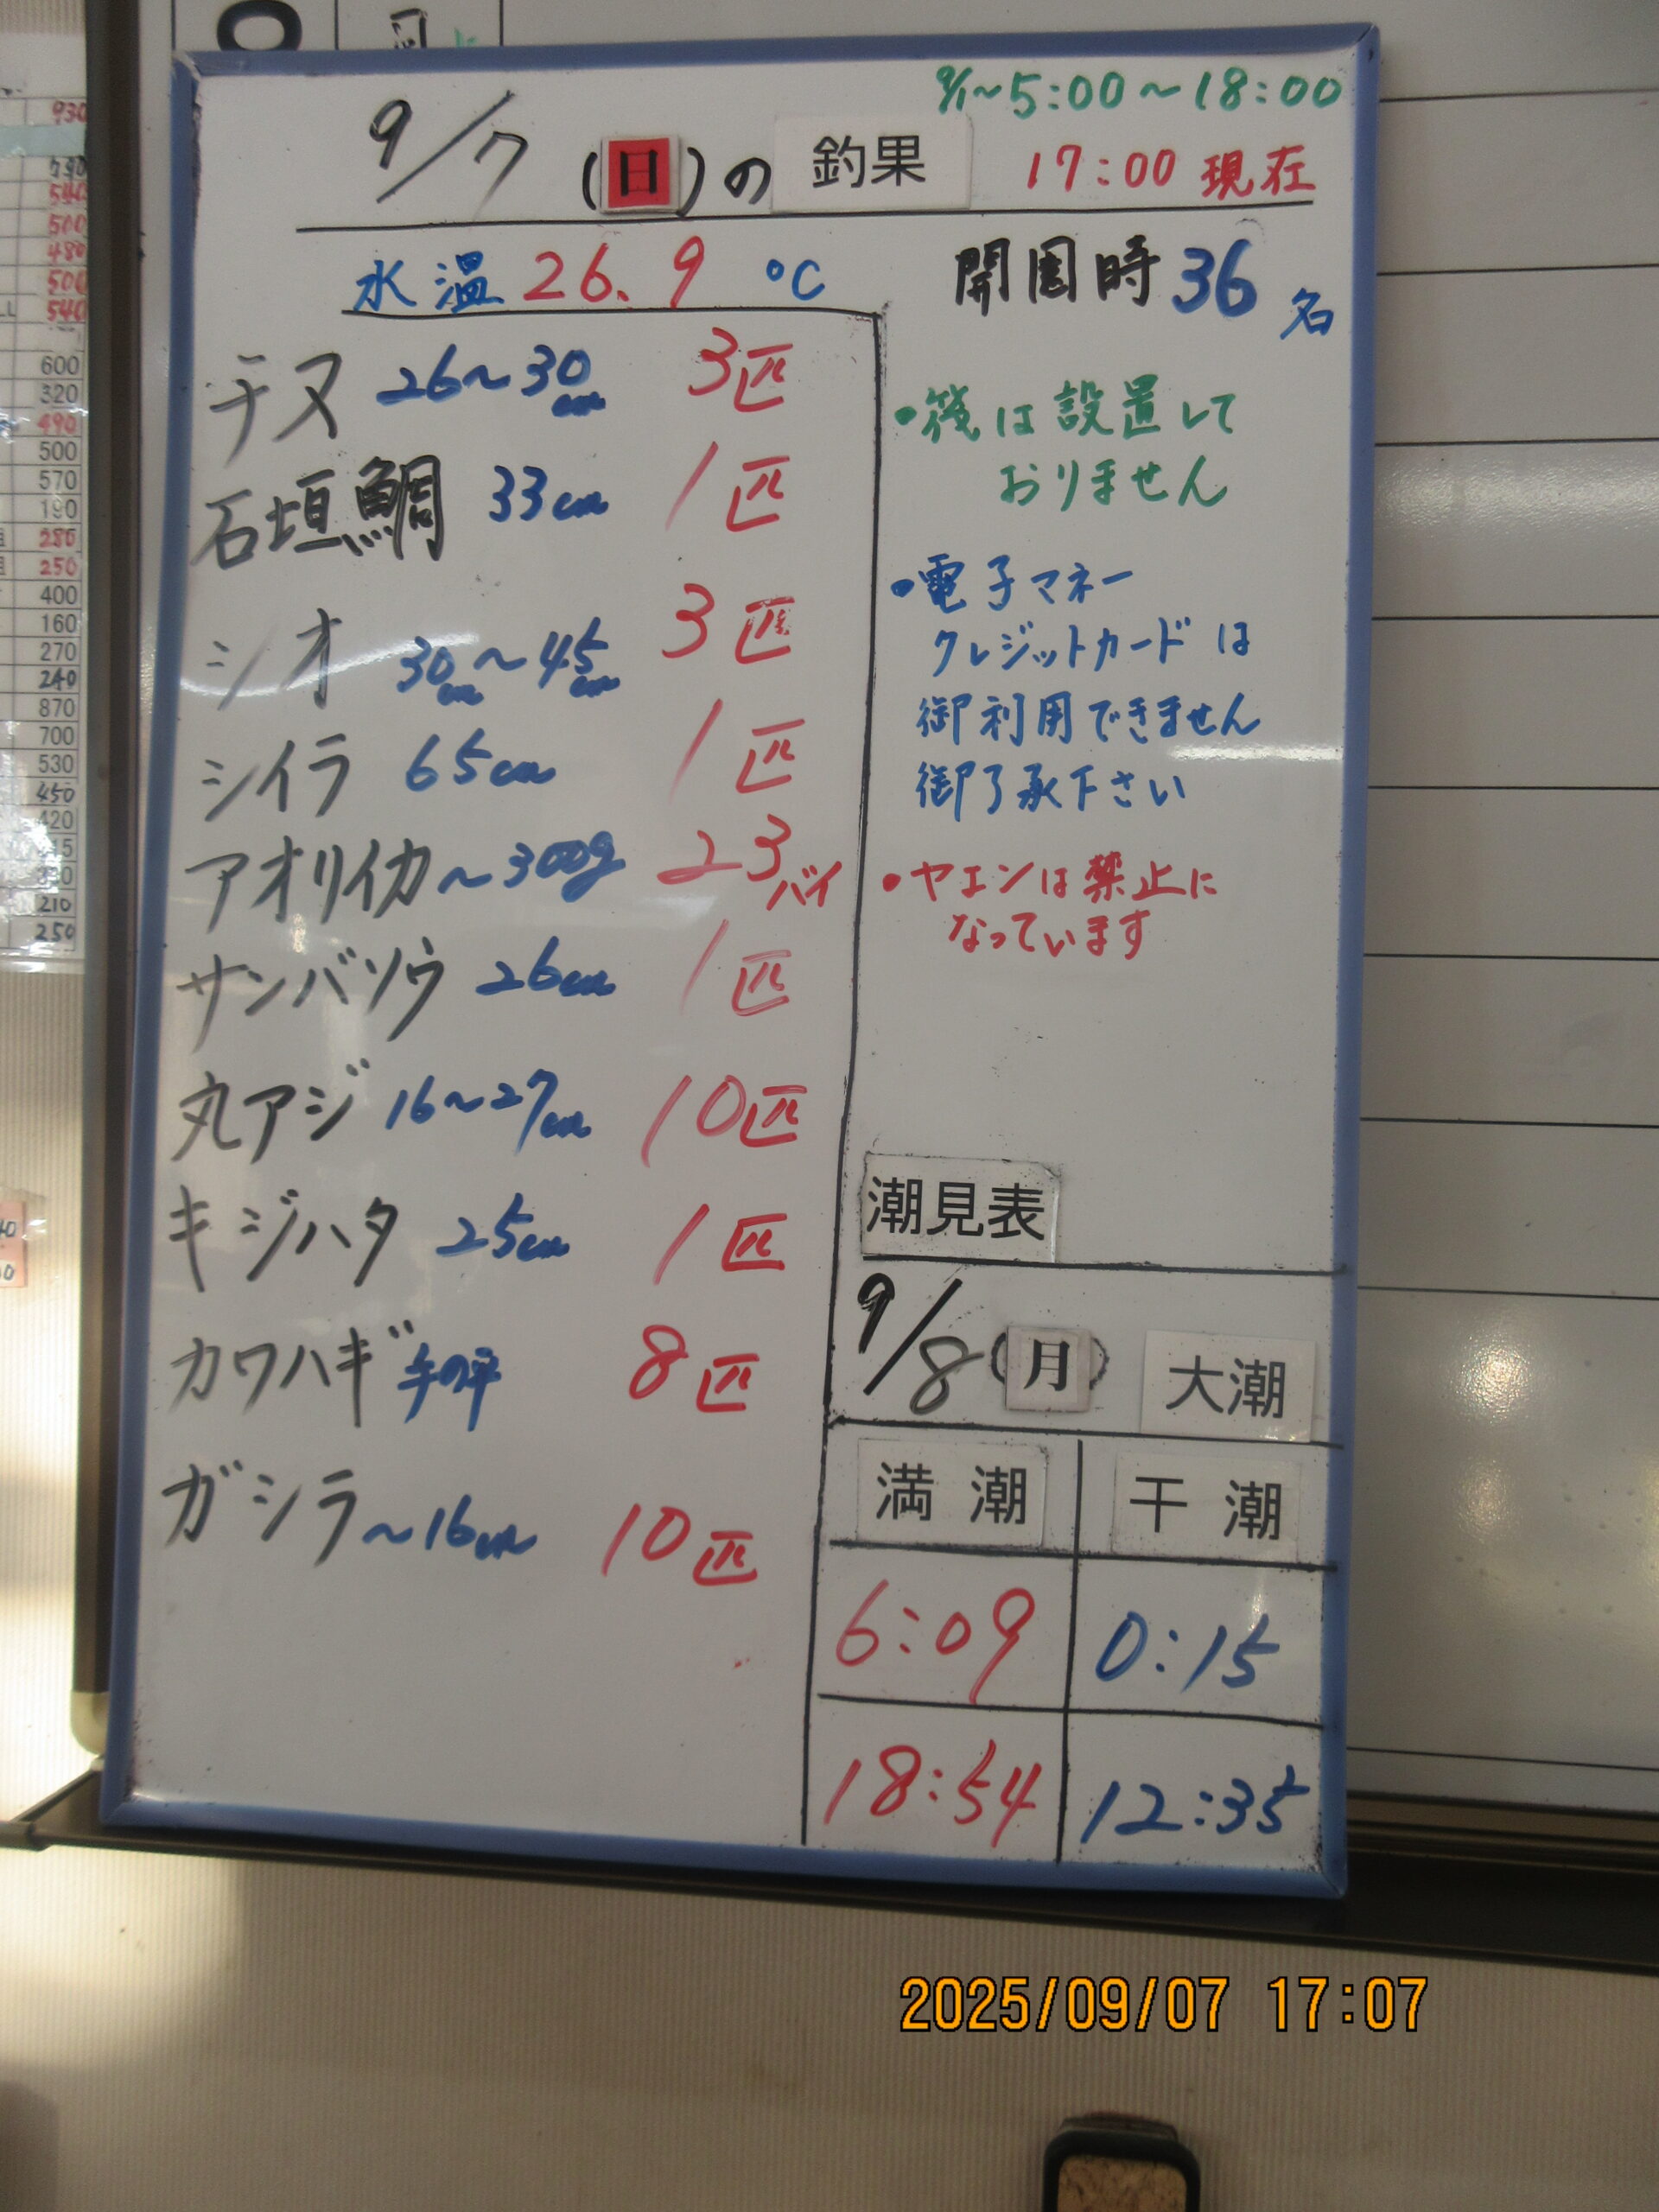 9/1~5:00~18:00
9/7(日)の 釣果 17:00 現在
水温 26.9 ℃
開園時 36名
チヌ 26~30cm 3匹
石垣鯛 33cm 1匹
シオ 30cm~45cm 3匹
シイラ 65cm 1匹
アオリイカ ~300g 23バイ
サンバソウ 26cm 1匹
丸アジ 16~27cm 10匹
キジハタ 25cm 1匹
カワハギ 手の平 8匹
ガシラ ~16cm 10匹
・筏は設置して
おりません
・電子マネー
クレジットカードは
御利用できません
御了承下さい
・ヤエンは禁止に
なっています
潮見表
9/8(月) 大潮
満潮 干潮
6:09 0:15
18:54 12:35
2025/09/07 17:07
930
750
540
500
480
500
540
600
320
490
500
570
190
280
250
400
160
270
240
870
700
530
450
420
210
250